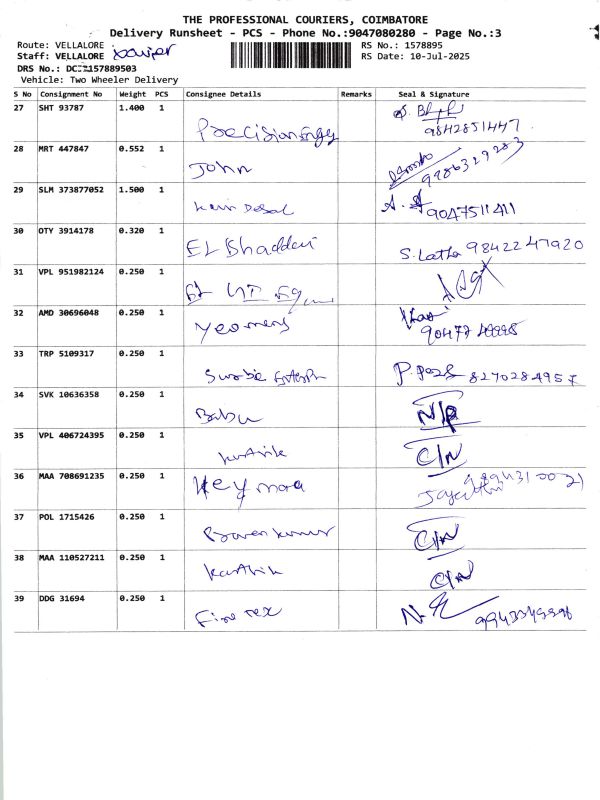 THE PROFESSIONAL COURIERS, COIMBATORE
Delivery Runsheet - PCS - Phone No.:9047080280 - Page No.:3
Route: VELLALORE
RS No.: 1578895
Staff: VELLALORE
RS Date: 10-Jul-2025
DRS No.: 157889503
Vehicle: Two Wheeler Delivery
S No Consignment No Weight PCS Consignee Details Remarks Seal & Signature
27 SHT 93787 1.400 1 9842851447
28 MRT 447847 0.552 1 John 9986329283
29 SLM 373877052 1.500 1 9047511411
30 OTY 3914178 0.320 1 EL Shaddai S. Latha 9842247920
31 VPL 951982124 0.250 1
32 AMD 30696048 0.250 1 Yeomens
33 TRP 5109317 0.250 1 8270284957
34 SVK 10636358 0.250 1 Babu N/R
35 VPL 406724395 0.250 1 Karthik C/N
36 MAA 708691235 0.250 1
37 POL 1715426 0.250 1 C/N
38 MAA 110527211 0.250 1 Karthik C/N
39 DDG 31694 0.250 1